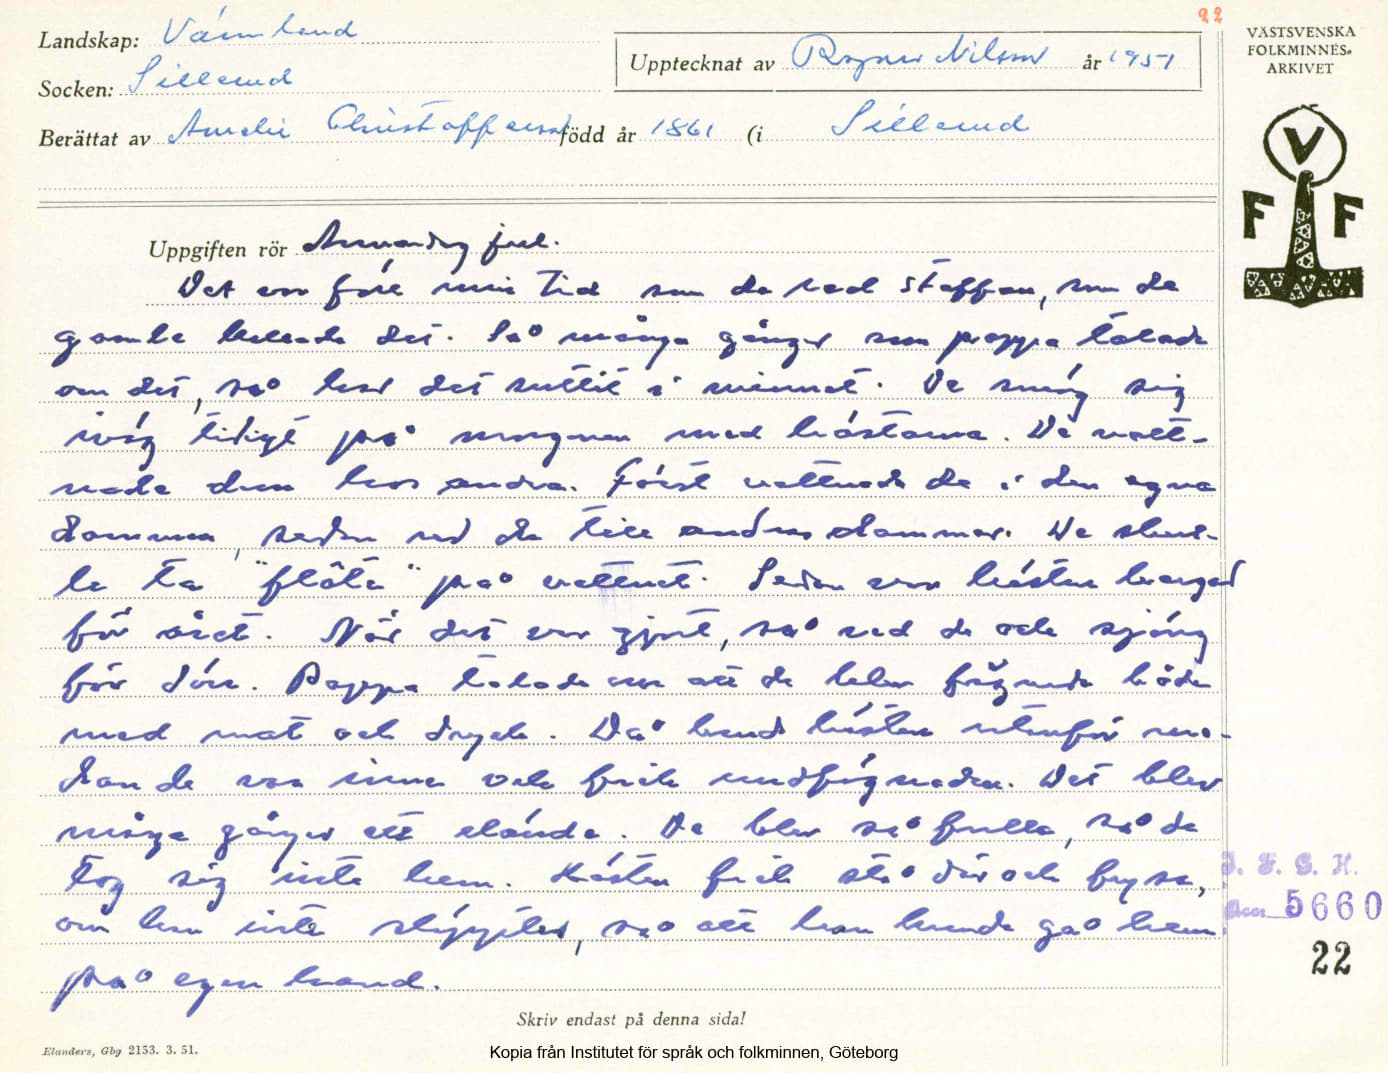 22
Landskap: Värmland
Socken: Sillerud
Upptecknat av Ragnar Nilsson år 1951
Berättat av Amelie Christoffersson född år 1861 (i Sillerud
VÄSTSVENSKA
FOLKMINNES-
ARKIVET
V
F F
Uppgiften rör Annandag jul.
Det var före min tid som de red staffan, som de
gamle kallade det. Så många gånger som pappa talade
om det, så har det suttit i minnet. De smög sig
iväg tidigt på morgonen med hästarna. De vatt-
nade dem hos andra. Först vattnade de i den egna
dammen, sedan red de till andras dammar. De skul-
le ta "flöte" på vattnet. Sedan var hästen bärgad
för året. När det var gjort, så red de och sjöng
för dörr. Pappa talade om att de blev fägnade både
med mat och dryck. Då bands hästen utanför me-
dan de var inne och fick undfägnaden. Det blev
många gånger ett elände. De blev så fulla, så de
tog sig inte hem. Hästen fick stå där och frysa,
om han inte släpptes, så att han kunde gå hem
på egen hand.
I. F. G. H.
Acc. 5660
22
Skriv endast på denna sida!
Elanders, Gbg 2153. 3. 51.
Kopia från Institutet för språk och folkminnen, Göteborg